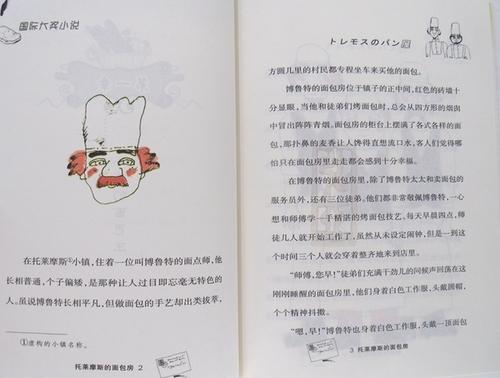 国际大奖小说
在托莱摩斯①小镇，住着一位叫博鲁特的面点师，他
长相普通，个子偏矮，是那种让人过目即忘毫无特色的
人。虽说博鲁特长相平凡，但做面包的手艺却出类拔萃，
①虚构的小镇名称。
托莱摩斯的面包房 2
トレモスのパン屋
方圆几里的村民都专程坐车来买他的面包。
博鲁特的面包房位于镇子的正中间，红色的砖墙十
分显眼，当他和徒弟们烤面包时，总会从四方形的烟囱
中冒出阵阵青烟。面包房的柜台上摆满了各式各样的面
包，那扑鼻的麦香让人馋得直想流口水，客人们觉得哪
怕只在面包房里走走都会感到十分幸福。
在博鲁特的面包房里，除了博鲁特太太和卖面包的
服务员外，还有三位徒弟。他们都非常敬佩博鲁特，一心
想和师傅学一手精湛的烤面包技艺。每天早晨四点，师
徒几人就开始工作了，虽然从未设定闹钟，但是一到这
个时间三个人就会穿着整齐地来到店里。
“师傅，您早！”徒弟们充满干劲儿的问候声回荡在这
刚刚睡醒的面包房里，他们身着白色工作服，头戴圆帽，
个个精神抖擞。
“嗯，早！”博鲁特也身着白色工作服，头戴一顶面包
3 托莱摩斯的面包房